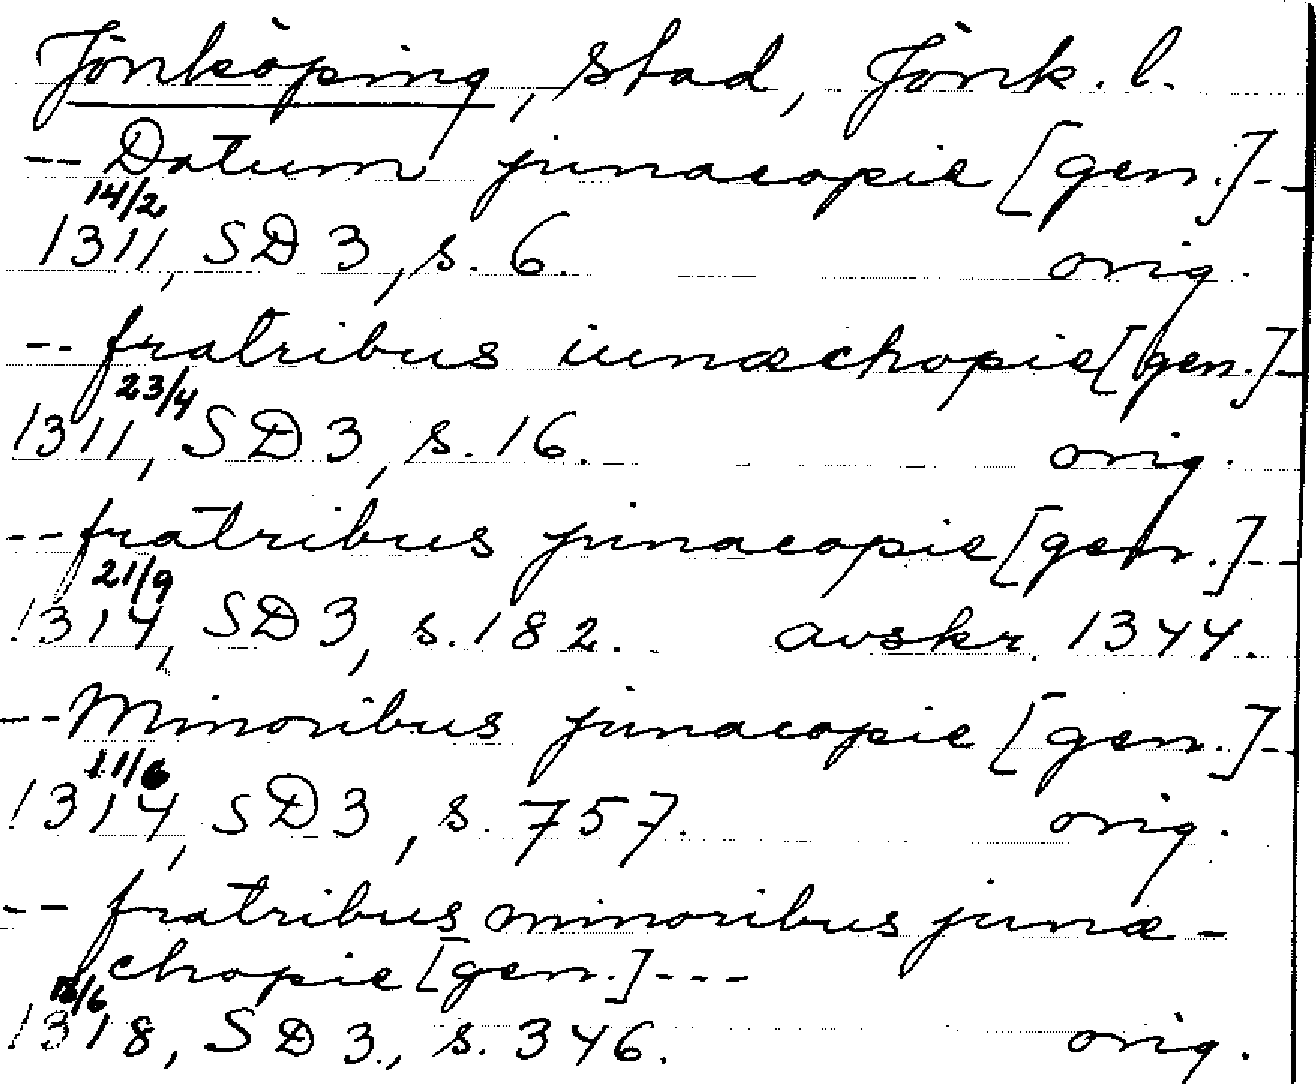 Jönköping, stad, Jönk. l.
-- Datum junacopie [gen.] --
14/2
1311, SD 3, s. 6. orig.
-- fratribus iunæchopie [gen.] -
23/4
1311, SD 3, s. 16. orig.
-- fratribus junacopie [gen.] --
21/9
1314, SD 3, s. 182. avskr. 1344.
-- Minoribus junacopie [gen.] -
11/6
1314, SD 3, s. 757. orig.
-- fratribus minoribus junæ-
chopie [gen.] ---
1318, SD 3., s. 346. orig.